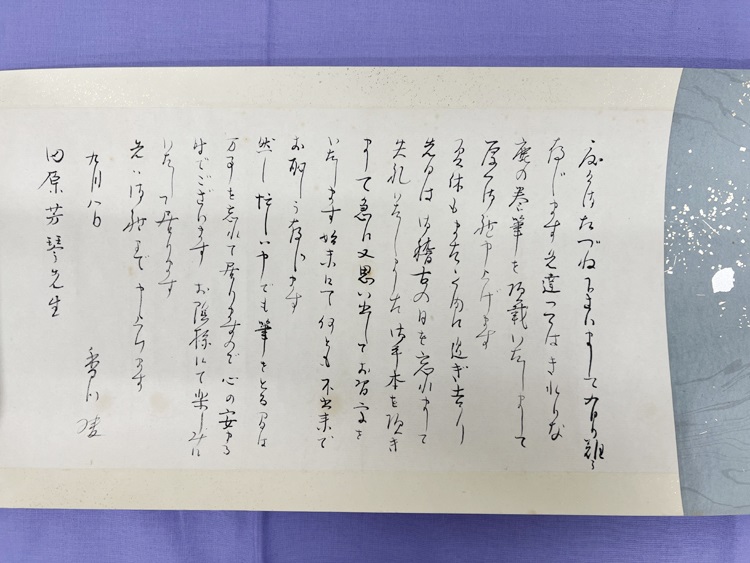 度々御たづね下さいまして有り難う
存じます 先達つてはきれいな
鹿の巻筆を頂戴いたしまして
厚く御礼申上げます
夏休もまたゝく間に過ぎ去り
先日は御稽古の日を忘れまして
失礼いたしました 御手本を頂き
まして急に又思い出してお習字を
いたします始末にて何とも不出来で
お恥しう存じます
然し忙しい中でも筆をとる間は
万事を忘れて居りますので心の安まる
時でございます お陰様にて楽しみに
いたして居ります
先ハ御礼まで申上げます
九月八日
香川
田原芳琴先生